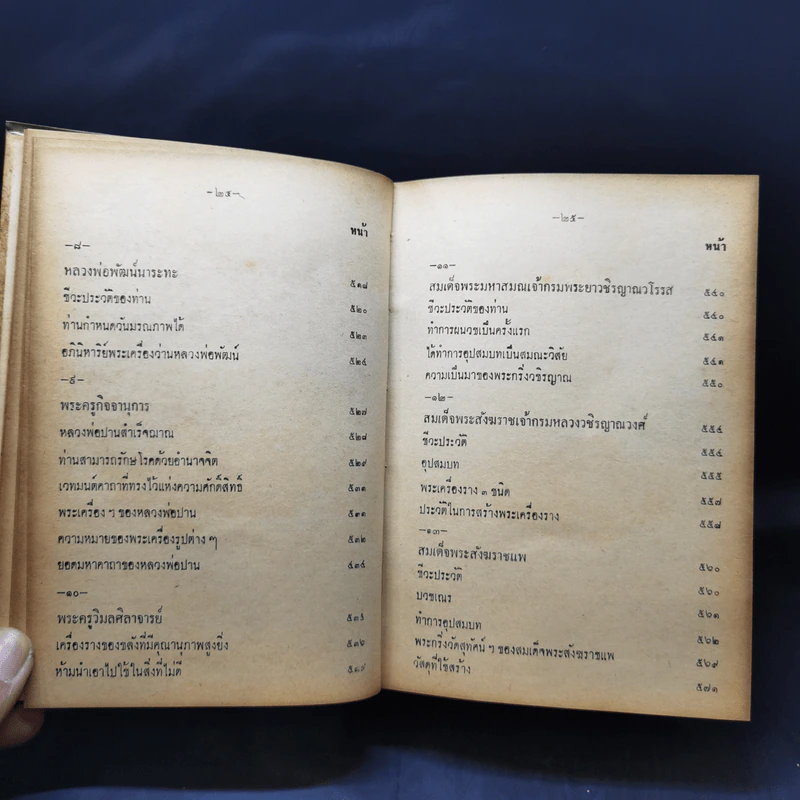 –๒๔–
หน้า
–๘–
หลวงพ่อพัฒน์นาระทะ ๕๑๘
ชีวะประวัติของท่าน ๕๒๐
ท่านกำหนดวันมรณภาพได้ ๕๒๓
อภินิหาริย์พระเครื่องว่านหลวงพ่อพัฒน์ ๕๒๔
–๙–
พระครูกิจจานุการ ๕๒๗
หลวงพ่อปานสำเร็จฌาณ ๕๒๘
ท่านสามารถรักษโรคด้วยอำนาจจิต ๕๒๙
เวทมนต์คาถาที่ทรงไว้แห่งความศักดิ์สิทธิ์ ๕๓๑
พระเครื่อง ๆ ของหลวงพ่อปาน
ความหมายของพระเครื่องรูปต่าง ๆ ๕๓๒
ยอดมหาคาถาของหลวงพ่อปาน
–๑๐–
พระครูวิมลศิลาจารย์
เครื่องรางของขลังที่มีคุณานุภาพสูงยิ่ง ๕๓๖
ห้ามนำเอาไปใช้ในสิ่งที่ไม่ดี
–๒๕–
หน้า
–๑๑–
สมเด็จพระมหาสมณเจ้ากรมพระยาวชิรญาณวโรรส ๕๔๐
ชีวะประวัติของท่าน ๕๔๐
ทำการผนวชเป็นครั้งแรก ๕๔๑
ได้ทำการอุปสมบทเป็นสมณะวิสัย ๕๔๑
ความเป็นมาของพระกริ่งวชิรญาณ ๕๕๐
–๑๒–
สมเด็จพระสังฆราชเจ้ากรมหลวงวชิรญาณวงศ์ ๕๕๔
ชีวะประวัติ ๕๕๔
อุปสมบท ๕๕๕
พระเครื่องราง ๓ ชนิด ๕๕๗
ประวัติในการสร้างพระเครื่องราง ๕๕๘
–๑๓–
สมเด็จพระสังฆราชแพ ๕๖๐
ชีวะประวัติ ๕๖๐
บวชเณร ๕๖๑
ทำการอุปสมบท ๕๖๒
พระกริ่งวัดสุทัศน์ ๆ ของสมเด็จพระสังฆราชแพ ๕๖๙
วัสดุที่ใช้สร้าง ๕๗๑